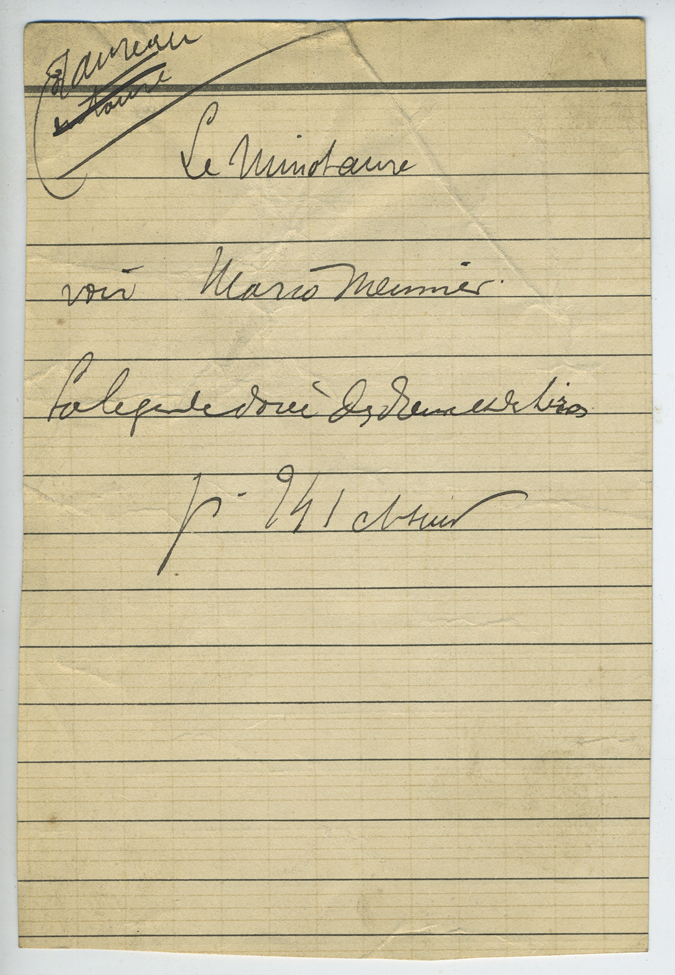 taureau
Le Minotaure
voir Mario Meunier.
La legende dorée des dieux et des héros
p. 241 et suiv